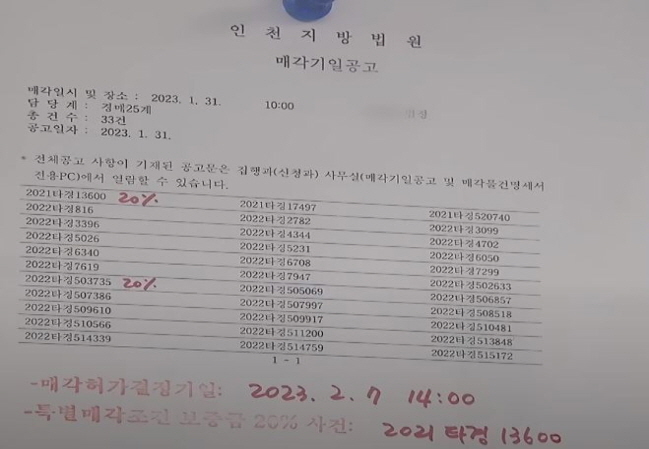 인 천 지 방 법 원
매각기일공고
매각일시 및 장소 : 2023. 1. 31. 10:00
담 당 계 : 경매25계
총 건 수 : 33건
공고일자 : 2023. 1. 31.
* 전체공고 사항이 기재된 공고문은 집행과(신청과) 사무실(매각기일공고 및 매각물건명세서
전용PC)에서 열람할 수 있습니다.
2021타경13600 20% 2021타경17497 2021타경520740
2022타경816 2022타경2782 2022타경3099
2022타경3396 2022타경4344 2022타경4702
2022타경5026 2022타경5231 2022타경6050
2022타경6340 2022타경6708 2022타경7299
2022타경7619 2022타경7947 2022타경502633
2022타경503735 20% 2022타경505069 2022타경506857
2022타경507386 2022타경507997 2022타경508518
2022타경509610 2022타경509917 2022타경510481
2022타경510566 2022타경511200 2022타경513848
2022타경514339 2022타경514759 2022타경515172
1 - 1
-매각허가결정기일: 2023. 2. 7 14:00
-특별매각조건 보증금 20% 사건: 2021 타경 13600